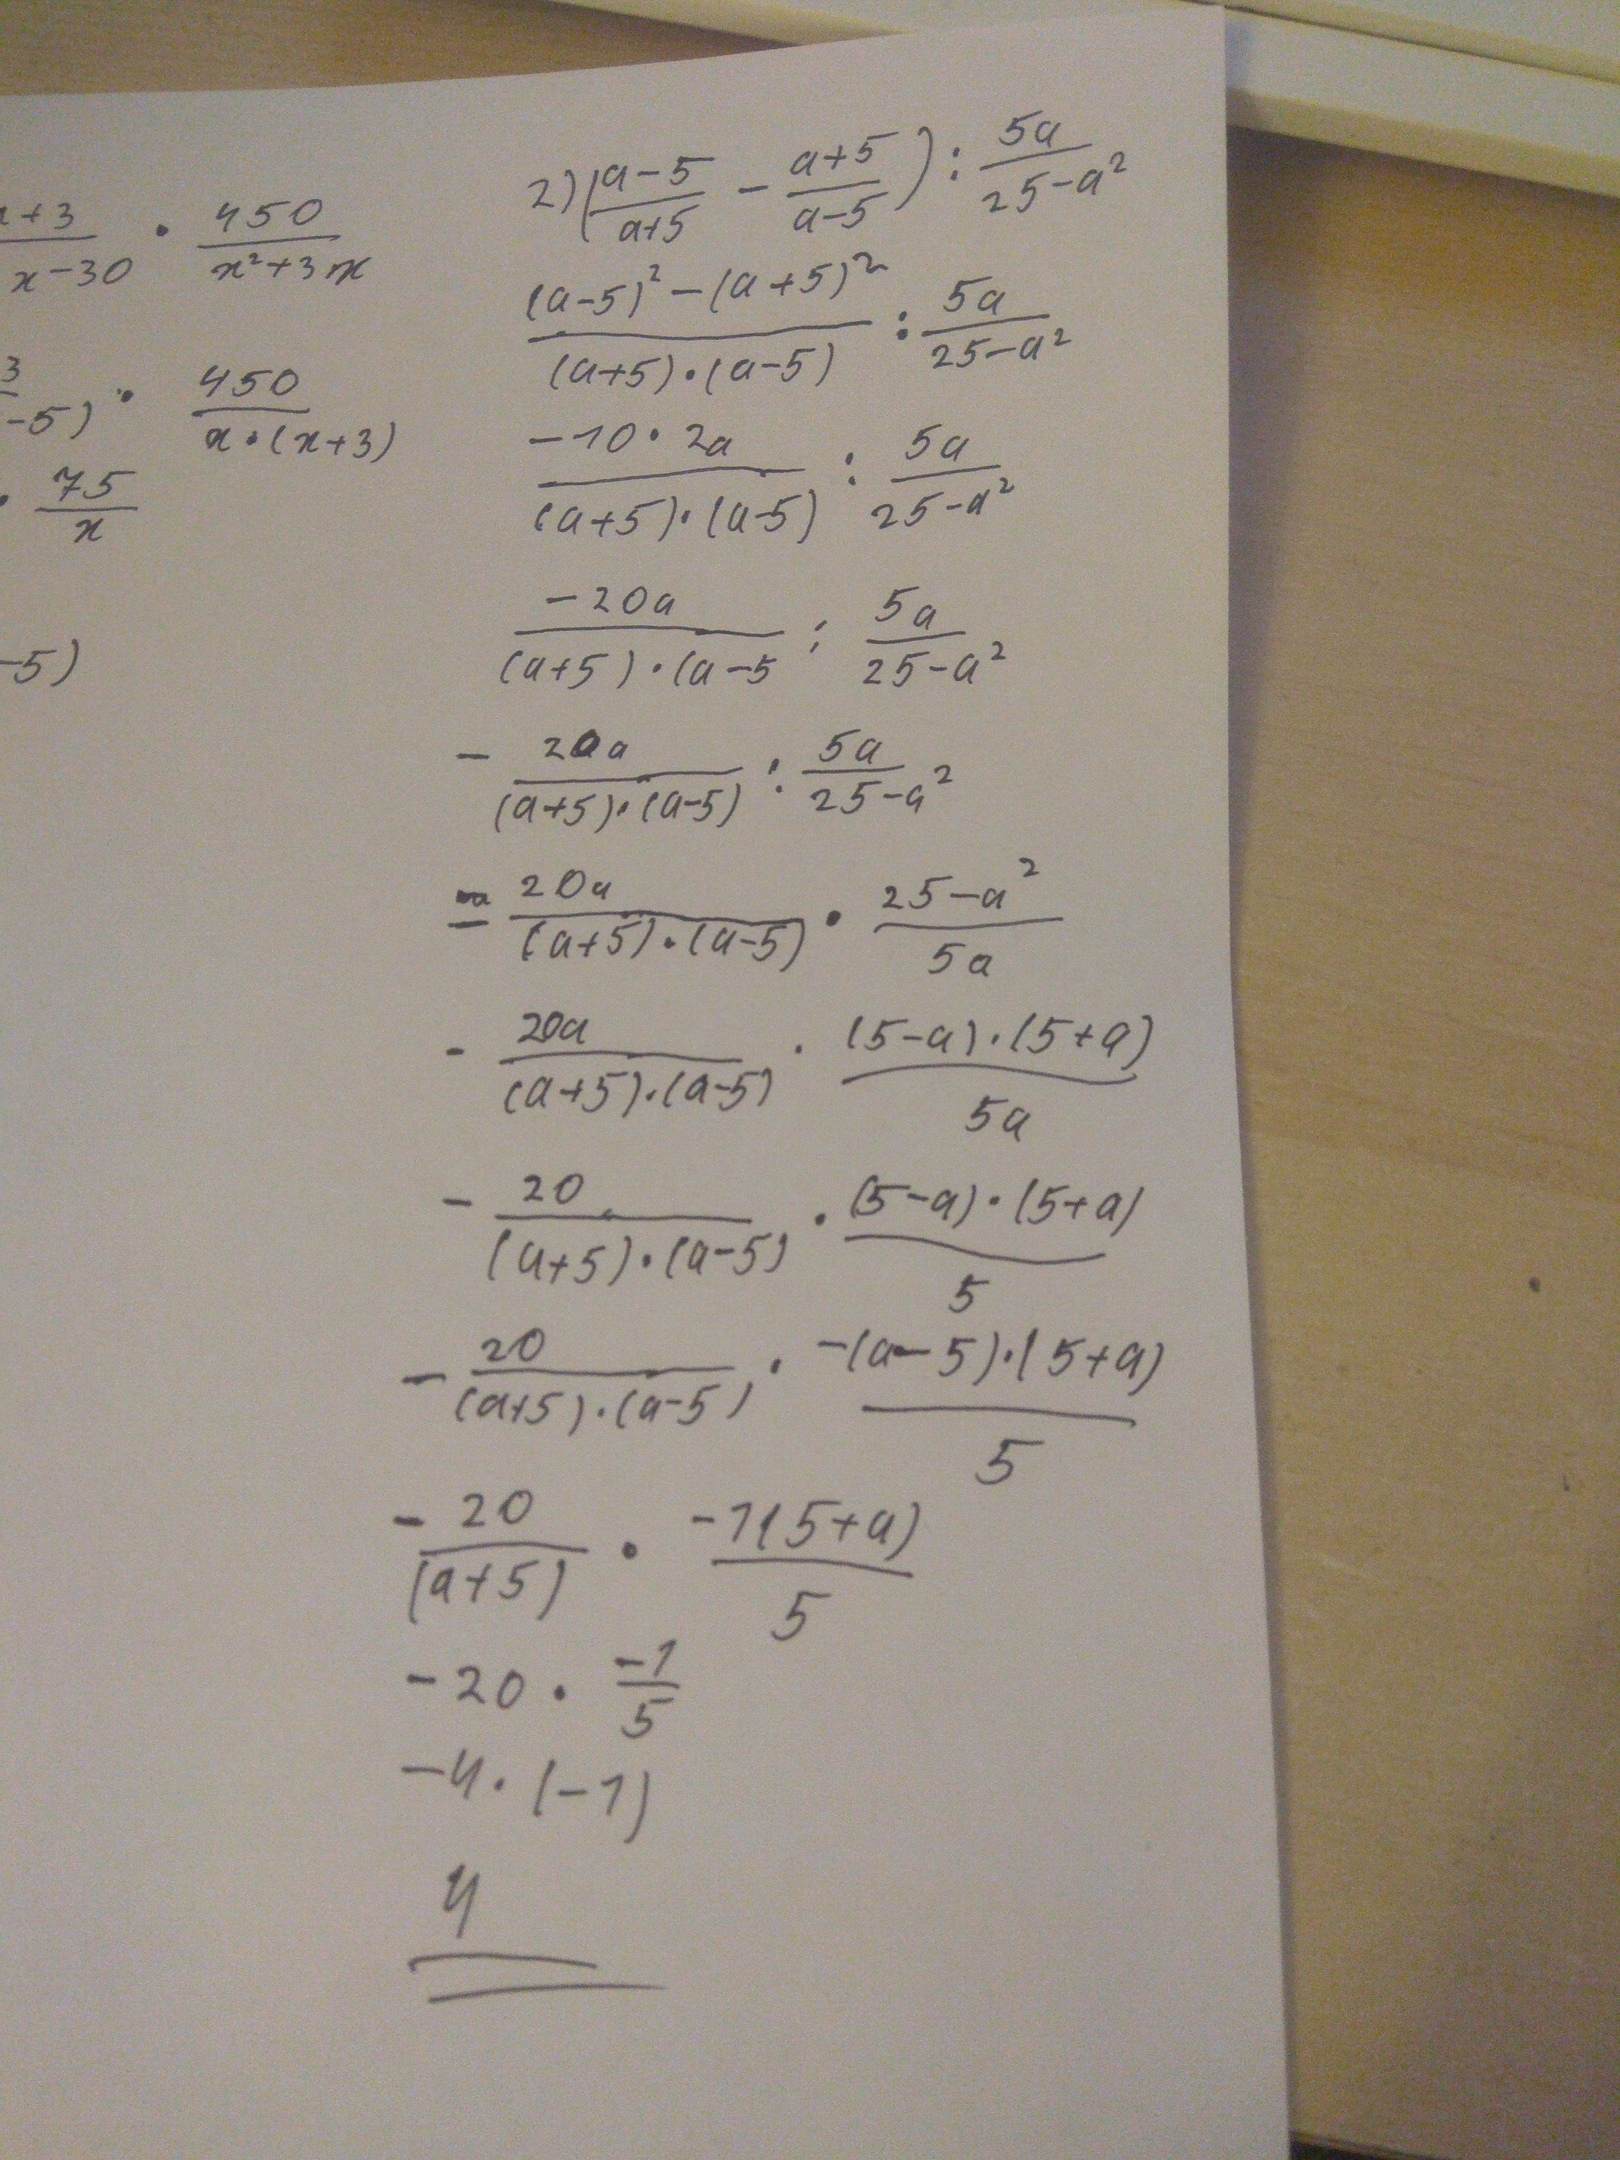 x-30 · 450/(x²+3x)
-5) · 450/(x·(x+3))
· 75/x
-5)
2) ((a-5)/(a+5) - (a+5)/(a-5)) : 5a/(25-a²)
((a-5)² - (a+5)²)/((a+5)·(a-5)) : 5a/(25-a²)
(-10·2a)/((a+5)·(a-5)) : 5a/(25-a²)
-20a/((a+5)·(a-5) : 5a/(25-a²)
- 20a/((a+5)·(a-5)) : 5a/(25-a²)
= 20a/((a+5)·(a-5)) · (25-a²)/5a
- 20a/((a+5)·(a-5)) · ((5-a)·(5+a))/5a
- 20/((a+5)·(a-5)) · ((5-a)·(5+a))/5
- 20/((a+5)·(a-5)) · (-(a-5)·(5+a))/5
- 20/(a+5) · (-1(5+a))/5
-20 · -1/5
-4·(-1)
4